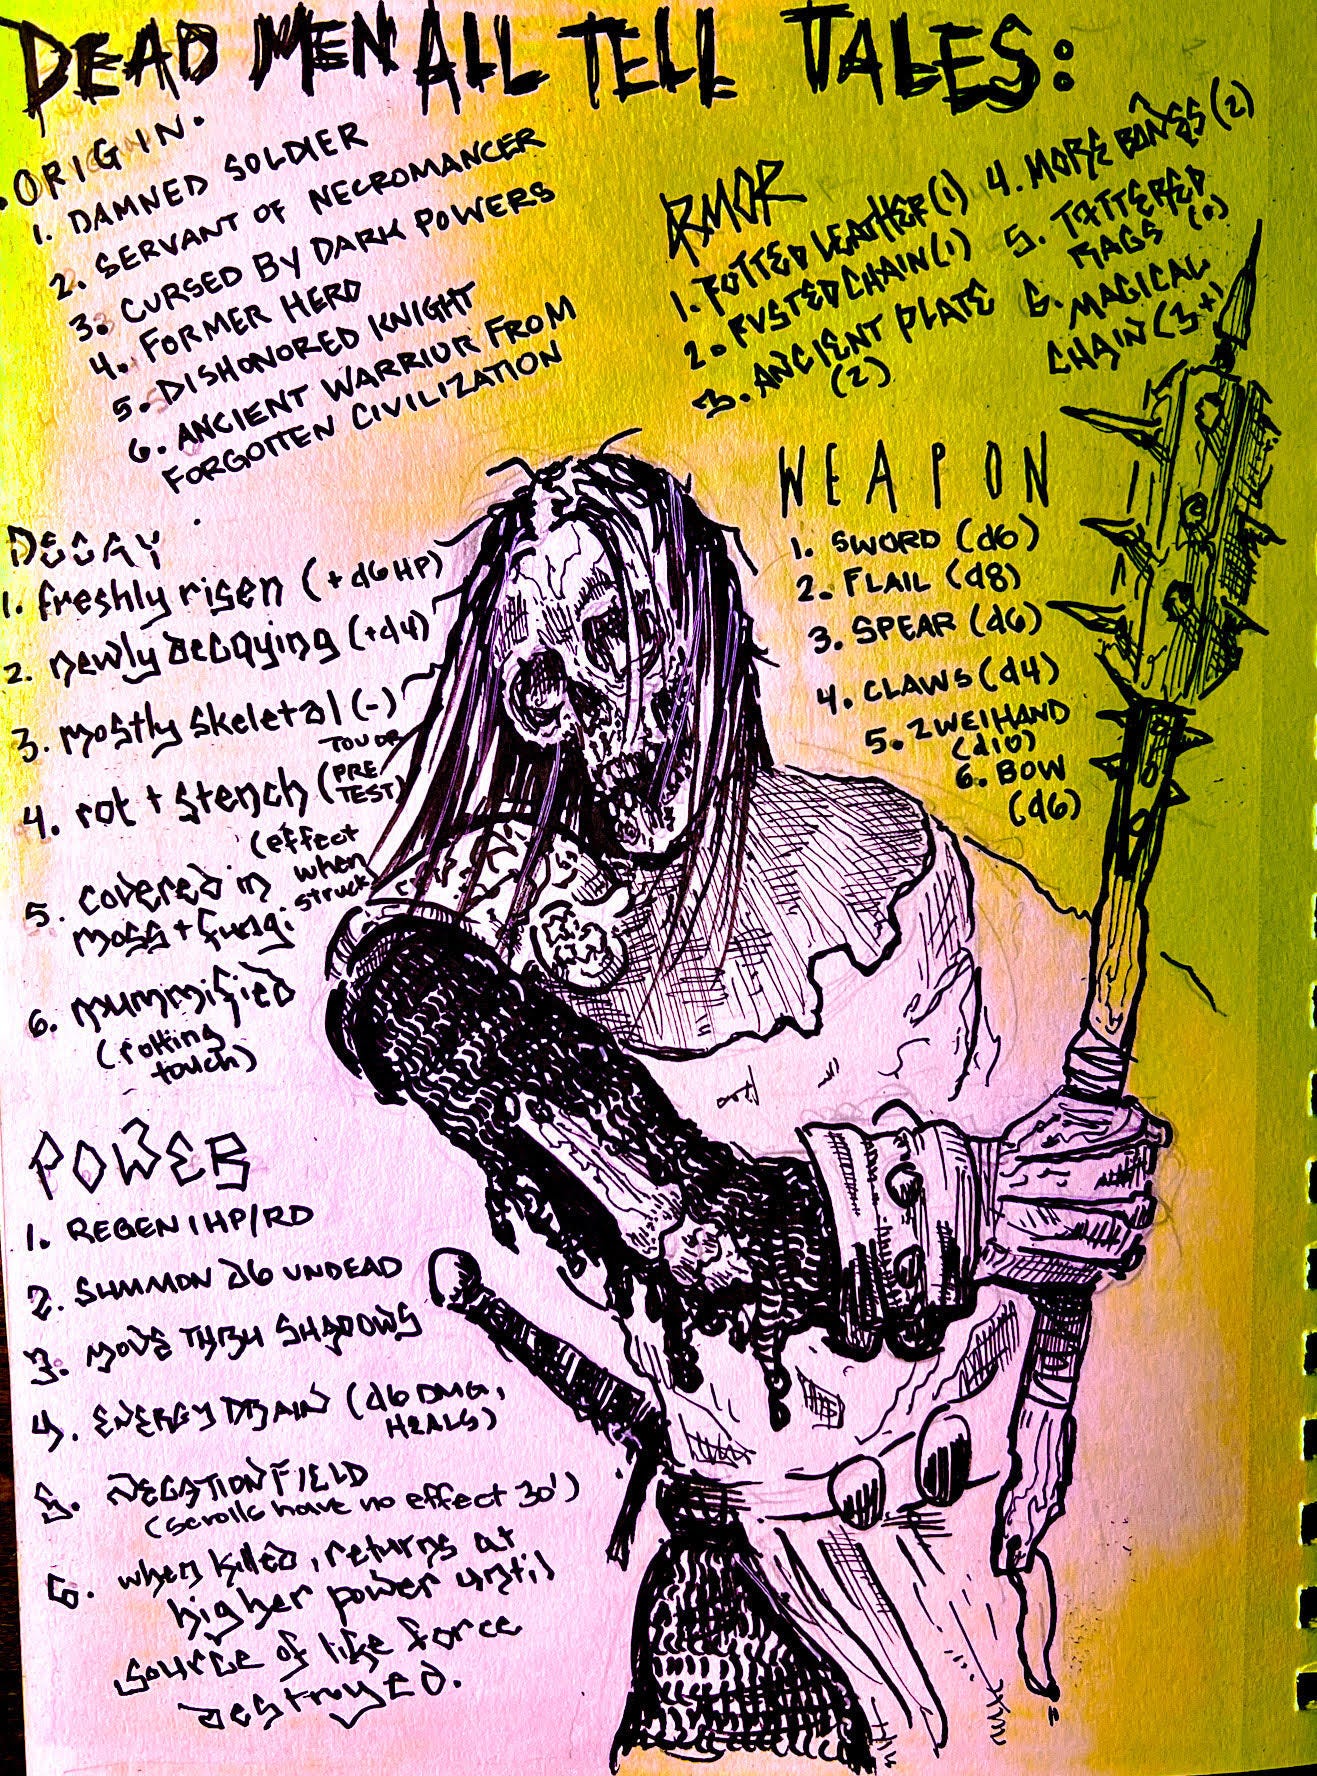 DEAD MEN ALL TELL TALES:
• ORIGIN •
1. DAMNED SOLDIER
2. SERVANT OF NECROMANCER
3. CURSED BY DARK POWERS
4. FORMER HERO
5. DISHONORED KNIGHT
6. ANCIENT WARRIOR FROM
FORGOTTEN CIVILIZATION
ARMOR
1. ROTTED LEATHER (1)
2. RUSTED CHAIN (1)
3. ANCIENT PLATE
(2)
4. MORE BONES (2)
5. TATTERED
RAGS (0)
6. MAGICAL
CHAIN (3+1
WEAPON
1. SWORD (d6)
2. FLAIL (d8)
3. SPEAR (d6)
4. CLAWS (d4)
5. ZWEIHAND
(d10)
6. BOW
(d6)
DECAY
1. freshly risen (+d6 HP)
2. newly decaying (+d4)
3. mostly skeletal (-)
4. rot + stench (PRE
TEST)
5. covered in
moss + fungi
(effect
when
struck)
6. mummified
(rotting
touch)
POWER
1. REGEN 1 HP/RD
2. SUMMON d6 UNDEAD
3. MOVE THRU SHADOWS
4. ENERGY DRAIN (d6 DMG,
HEALS)
5. NEGATION FIELD
(scrolls have no effect 30')
6. when killed, returns at
higher power until
source of life force
destroyed.